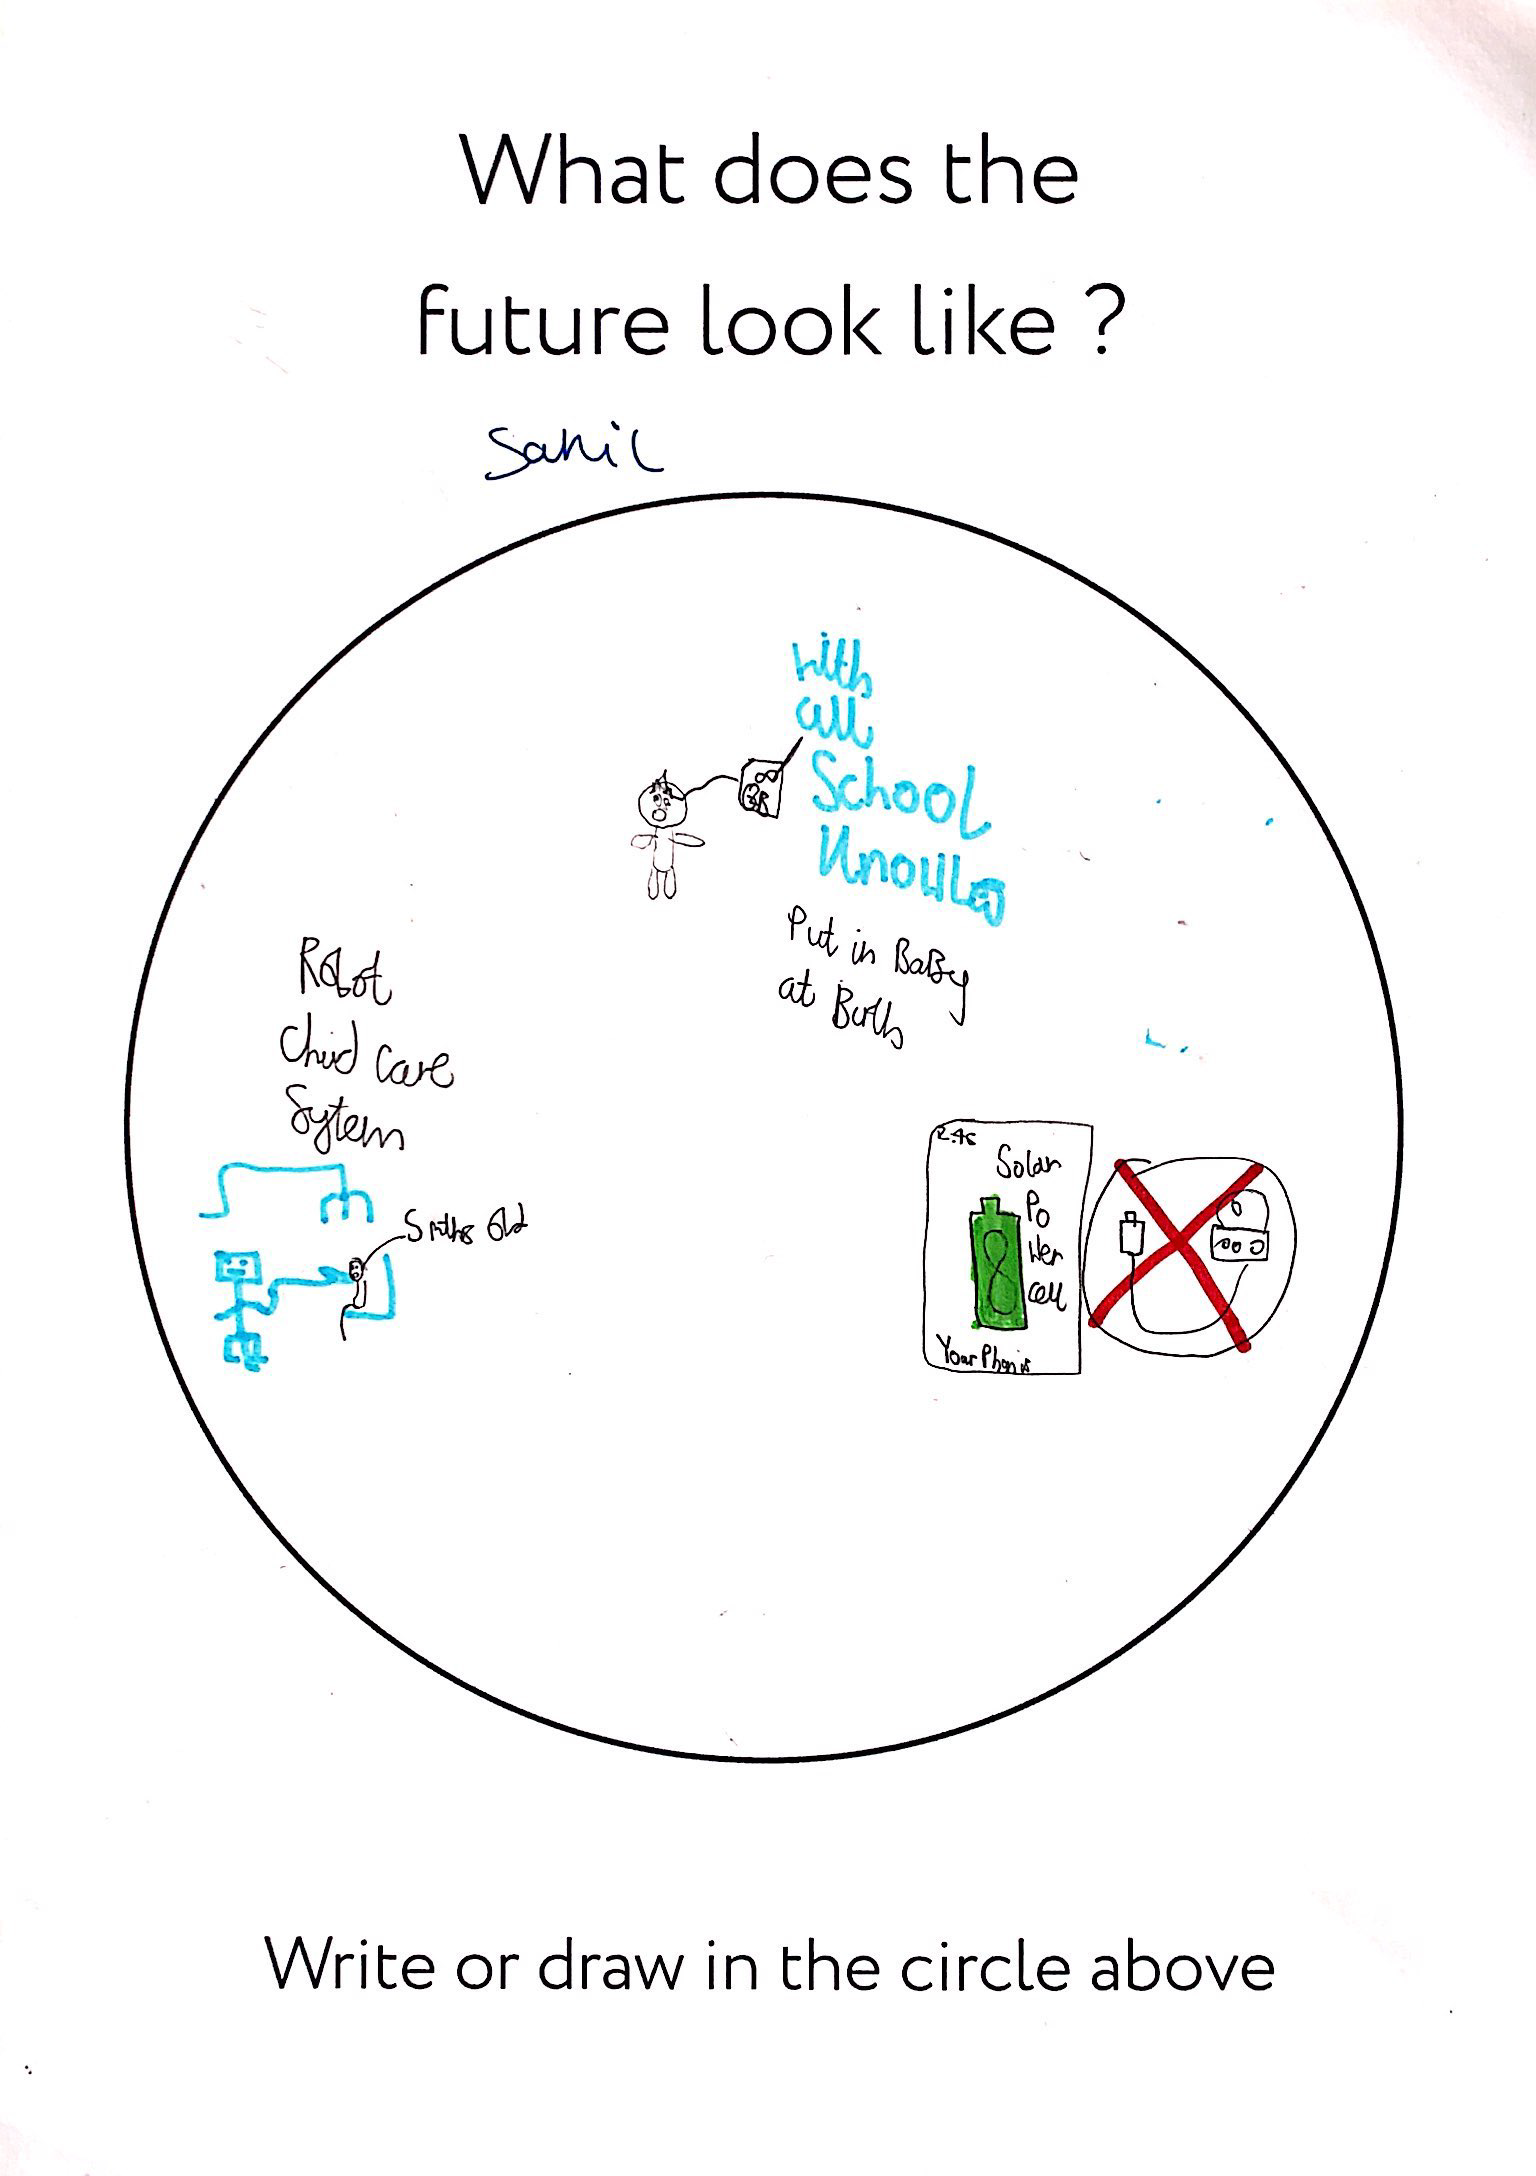 What does the
future look like ?
Sahil
with
all
School
Put in BaBy
at Birth
Robot
Child Care
Sytem
5 mths Old
2.45
Solar
Po
Wer
cell
Your Phon
Write or draw in the circle above